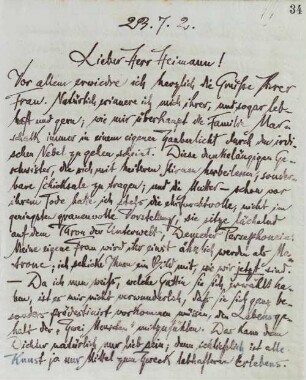 34
23.7.2.
Lieber Herr Heimann!
Vor allem erwiedre ich herzlich die Grüße Ihrer
Frau. Natürlich erinnere ich mich ihrer, und sogar leb-
haft und gern; wie mir überhaupt die Familie Mar-
schalk immer in einem eigenen Zauberlicht durch den irdi-
schen Nebel zu gehen scheint. Diese
schwister, die sich mit heitren Stirnen
bare Schicksale zu tragen; und die Mutter — schon vor
ihrem Tode habe ich stets die ehrfurchtvolle, nicht im
geringsten grauenvolle Vorstellung, sie sitze lächelnd
auf dem Thron der Unterwelt: Demeter Persephoneia.
Meine eigene Frau wird ihr einst ähnlich werden als Ma-
trone; ich schicke Ihnen ein Bild mit, wie wir jetzt sind.
— Da ich nun weiß, welche Gattin Sie sich erwählt ha-
ben, ist es mir nicht verwunderlich, daß Sie sich ganz be-
sonders prädestinirt vorkommen müssen, den Lebensge-
halt der „Zwei Menschen" mitzufühlen. Das kann dem
Dichter natürlich nur lieb sein; denn schließlich ist alle
Kunst ja nur Mittel zum Zweck lebhafteren Erlebens.